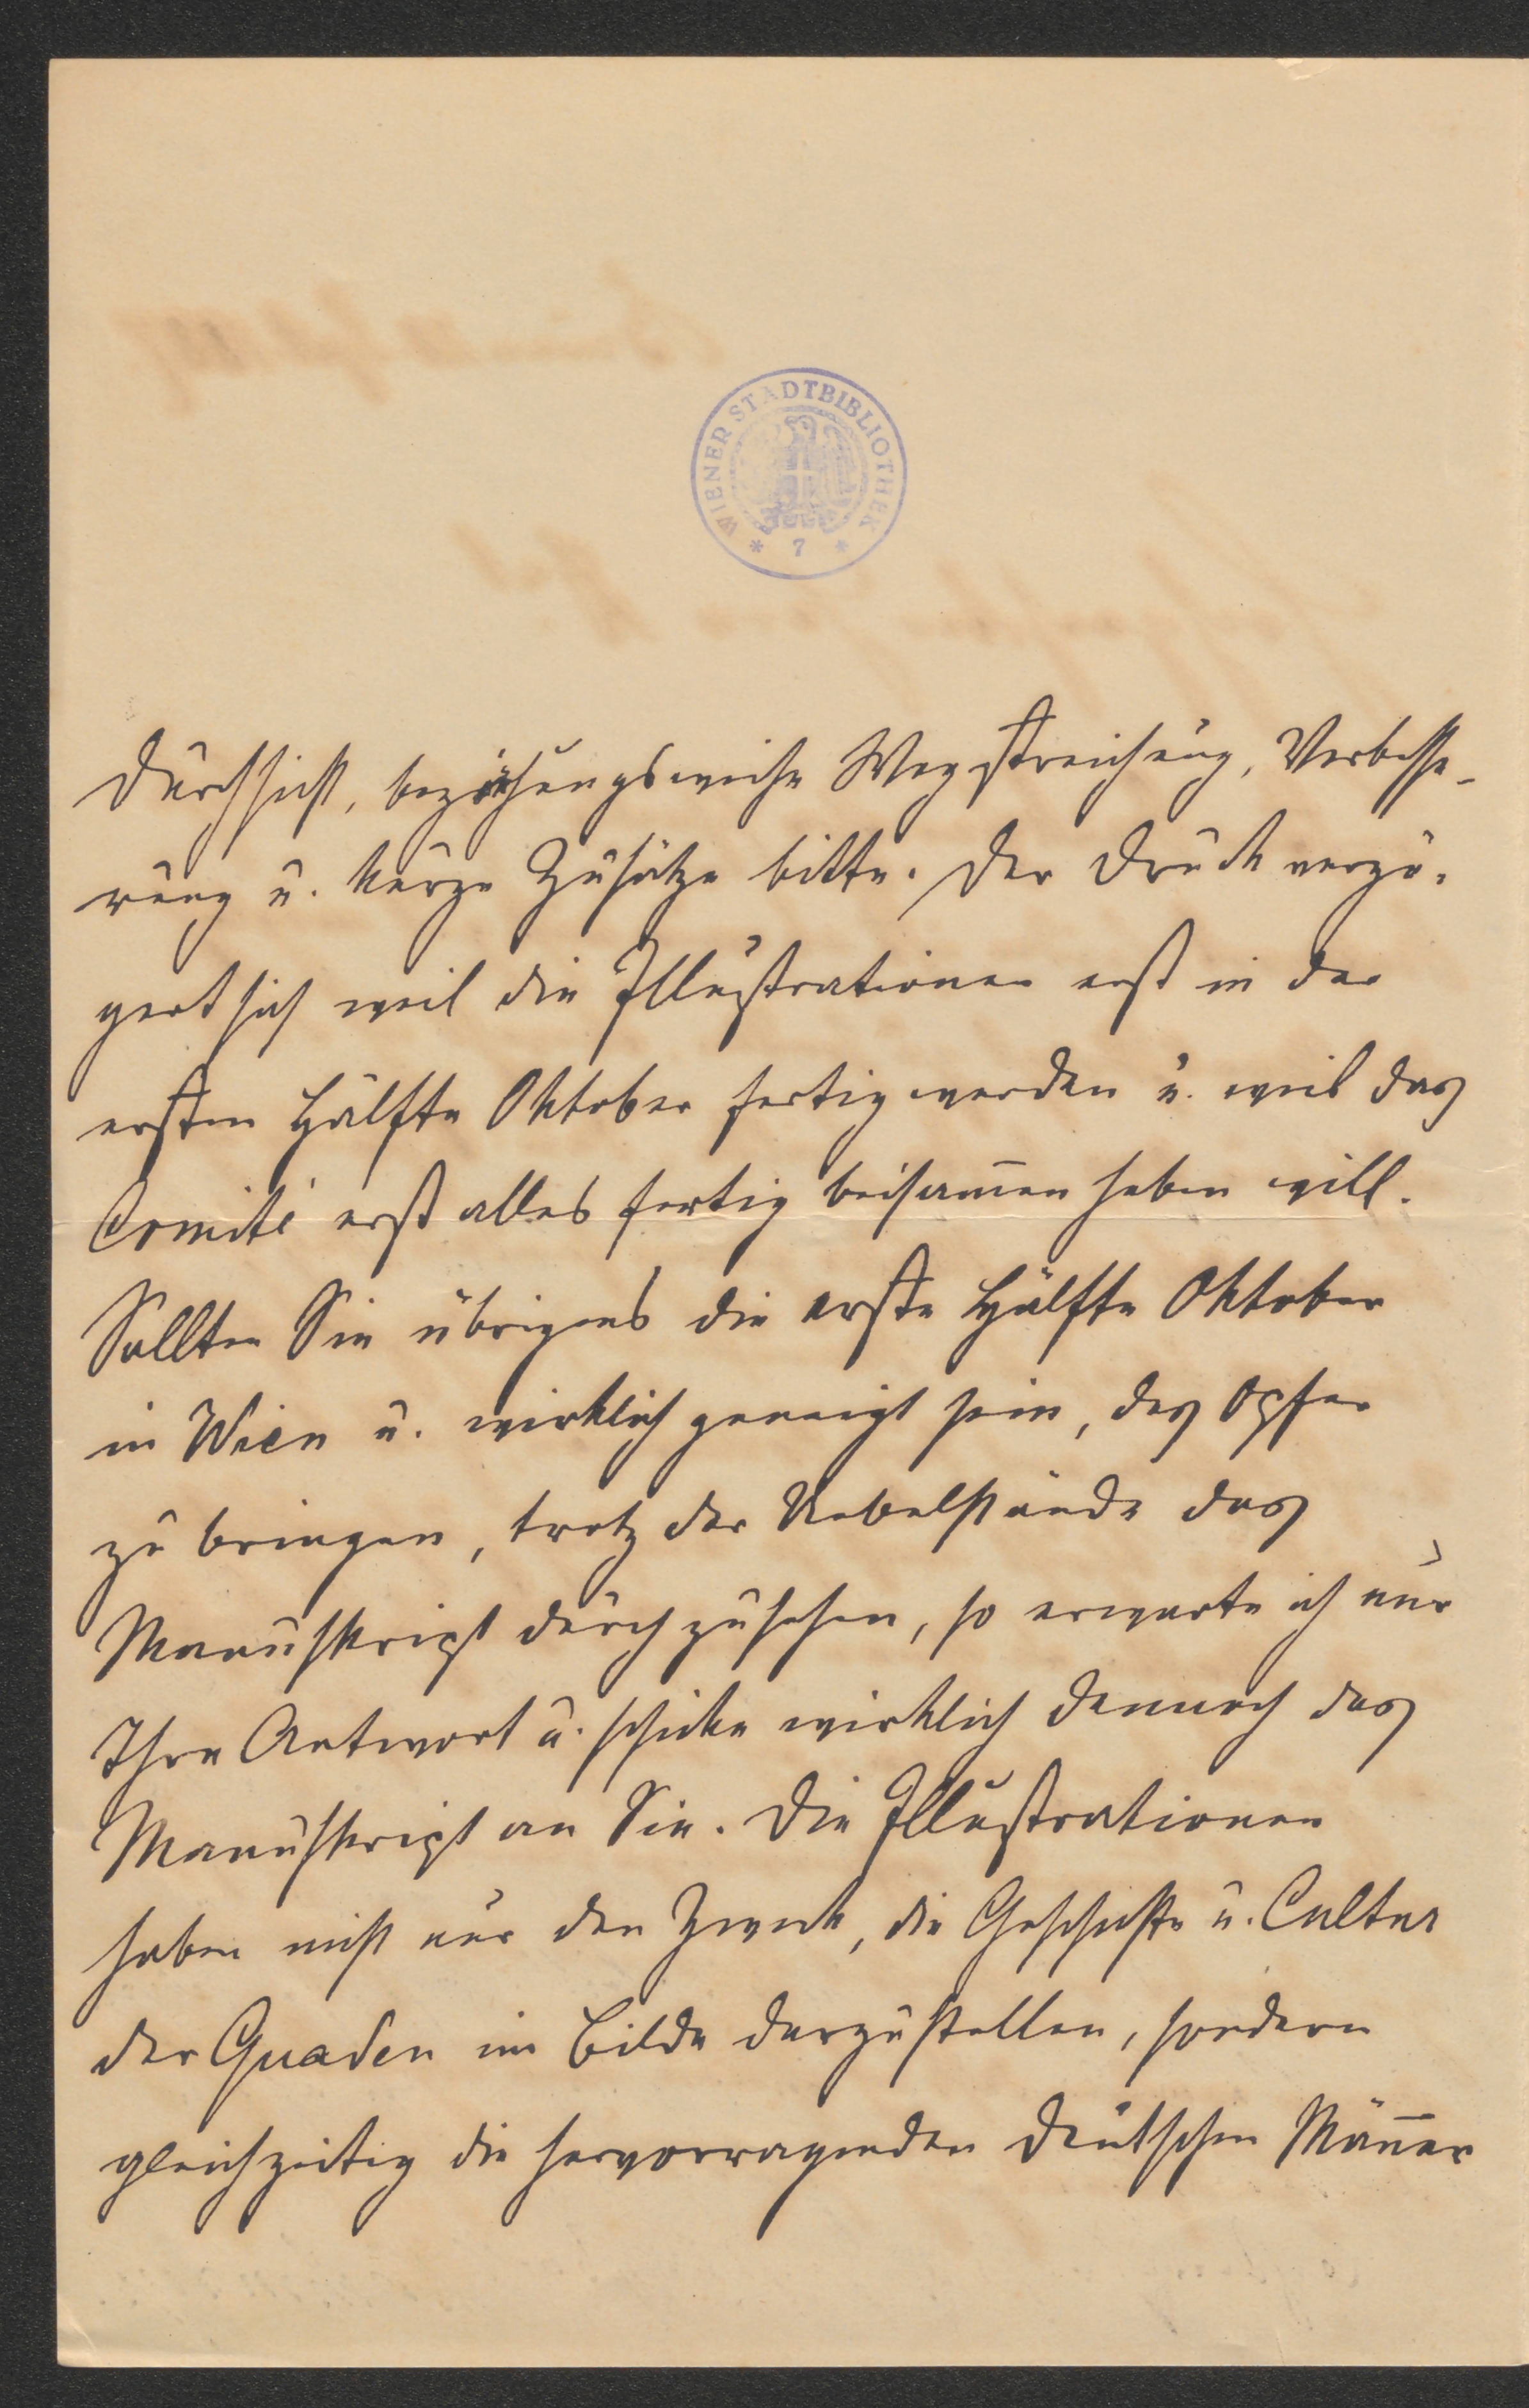 WIENER STADTBIBLIOTHEK
* 7 *
Durchsicht, beziehungsweise Wegstreichung, Verbesse-
rung u. kurze Zusätze bitte. Der Druck verzö-
gert sich weil die Illustrationen erst in der
ersten Hälfte Oktober fertig werden u. weil das
Comité erst alles fertig beisam̅en haben will.
Sollten Sie übrigens die erste Hälfte Oktober
in Wien u. wirklich geneigt sein, das Opfer
zu bringen, trotz der Uebelstände das
Manuskript durchzusehen, so erwarte ich nur
Ihre Antwort u. schicke wirklich dennoch das
Manuskript an Sie. Die Illustrationen
haben nicht nur den Zweck, die Geschichte u. Cultur
der Quaden im Bilde darzustellen, sondern
gleichzeitig die hervorragenden deutschen Män̅er